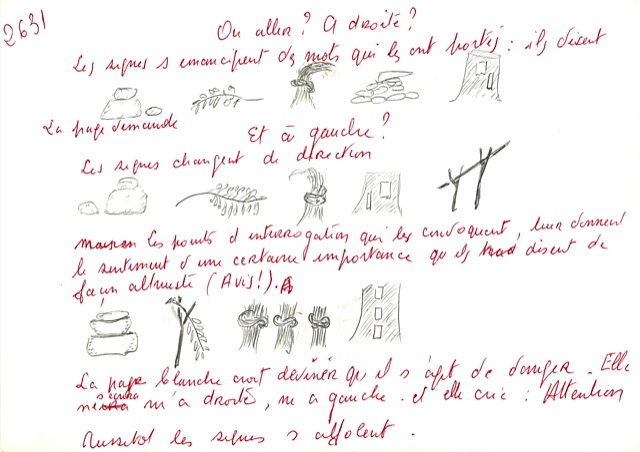 2631
Ou aller? A droite?
Les signes s emancipent des mots qui les ont portés : ils disent
La page demande
Et à gauche?
Les signes changent de direction
les points d interrogation qui les convoquent, leur donnent
le sentiment d une certaine importance qu ils disent de
façon altruiste (Avis!).
La page blanche croit deviner qu il s agit de danger. Elle
signera ni a droite, ni a gauche. et elle crie : Attention
Aussitot les signes s affolent.